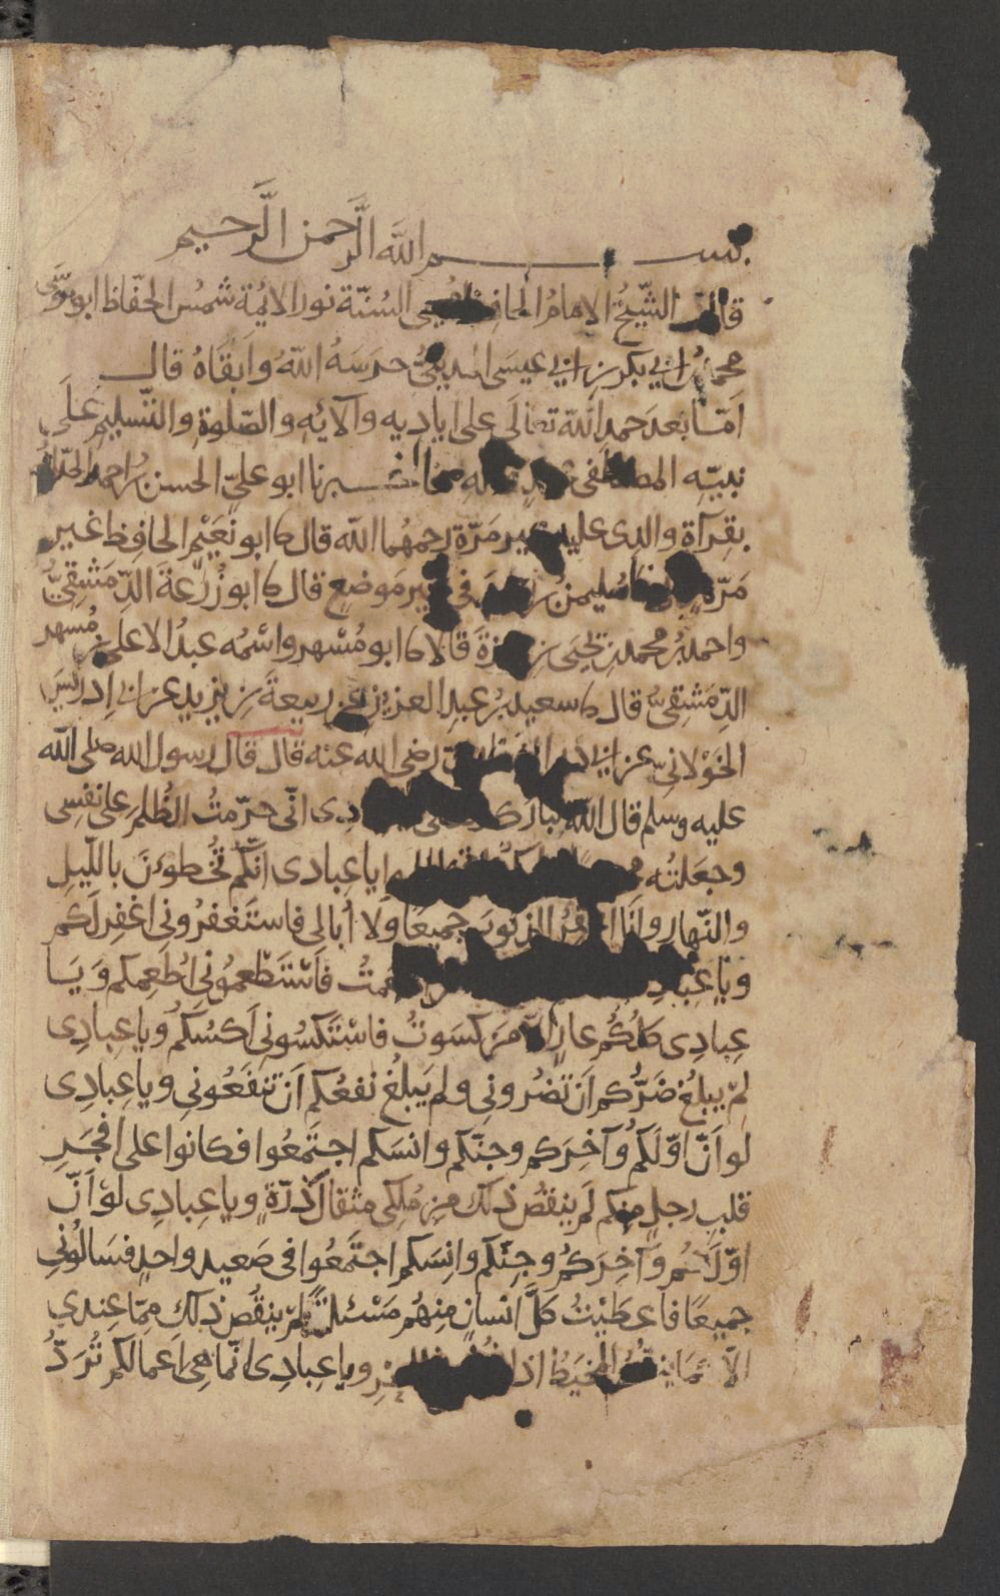 بسم الله الرحمن الرحيم
قال الشيخ الامام الحافظ محيى السنة نور الائمة شمس الحفاظ ابو موسى
محمد بن ابي بكر بن ابي عيسى المديني حرسه الله وابقاه قال
اما بعد حمد الله تعالى على اياديه وآلائه والصلوة والتسليم على
نبيه المصطفى وآله اخبرنا ابو علي الحسن بن احمد الحداد
بقرآة والدى عليه غير مرة رحمهما الله قال ثنا ابو نعيم الحافظ غير
مرة ثنا سليمن بن احمد فى غير موضع قال ثنا ابو زرعة الدمشقي
واحمد بن محمد بن يحيى بن حمزة قالا ثنا ابو مسهر واسمه عبد الاعلى بن مسهر
الدمشقي قال ثنا سعيد بن عبد العزيز عن ربيعة بن يزيد عن ابي ادريس
الخولاني عن ابي ذر رضي الله عنه قال قال رسول الله صلى الله
عليه وسلم قال الله تبارك دى انى حرمت الظلم على نفسى
وجعلته يا عبادى انكم تخطوئن بالليل
والنهار وانا اغفر الذنوب جميعا ولا أبالى فاستغفرونى اغفر لكم
ويا عبادى اطعمت فاستطعمونى اطعمكم ويا
عبادى كلكم عار الا من كسوت فاستكسونى اكسكم ويا عبادى
لم يبلغ ضركم ان تضرونى ولم يبلغ نفعكم ان تنفعونى ويا عبادى
لو ان اولكم وآخركم وجنكم وانسكم اجتمعوا فكانوا على افجر
قلب رجل منكم لم ينقص ذلك من ملكى مثقال ذرة ويا عبادى لو ان
اولكم وآخركم وجنكم وانسكم اجتمعوا فى صعيد واحد فسالونى
جميعا فاعطيت كل انسان منهم مسئلته لم ينقص ذلك مما عندي
الا كما ينقص المخيط اذا ويا عبادى انما هى اعمالكم ترد